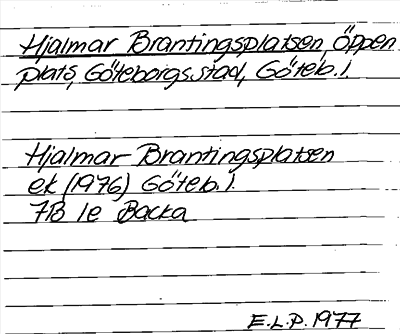 Hjalmar Brantingsplatsen, öppen
plats, Göteborgs stad, Göteb. l.
Hjalmar Brantingsplatsen
ek (1976) Göteb. l.
7B 1e Backa
E.L.P. 1977